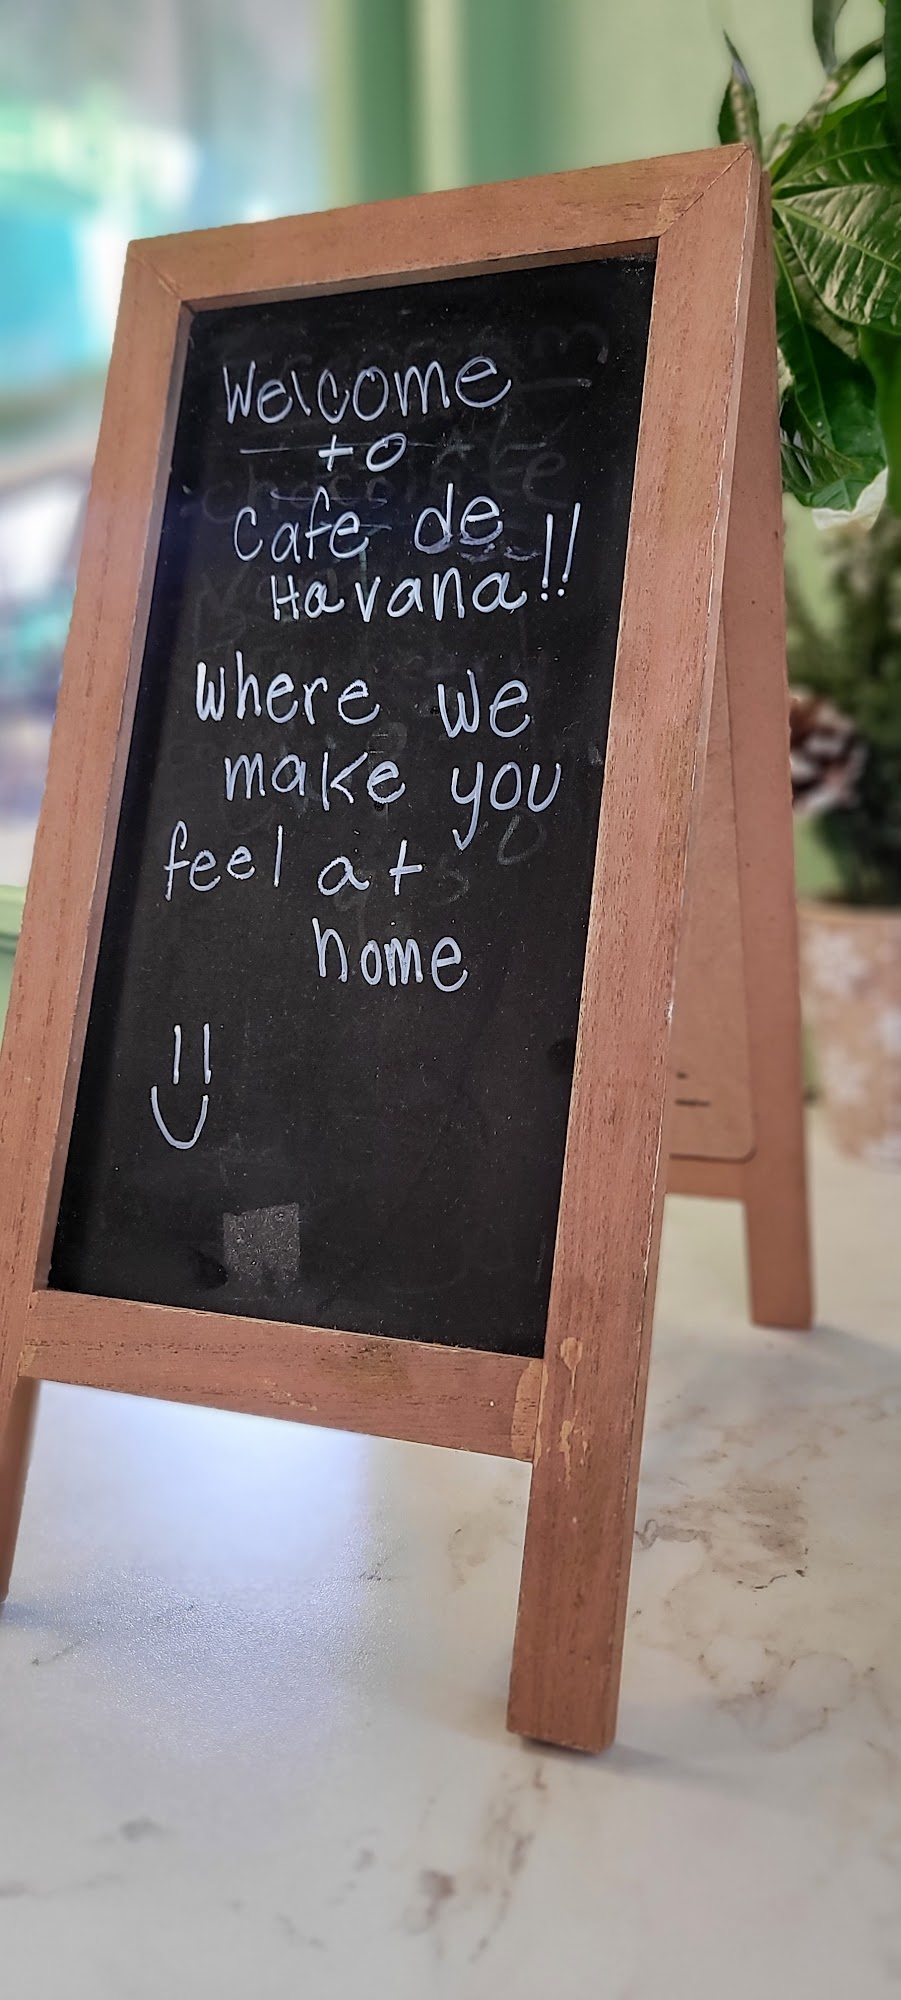 Welcome
to
Cafe de
Havana!!
Where we
make you
feel at
home